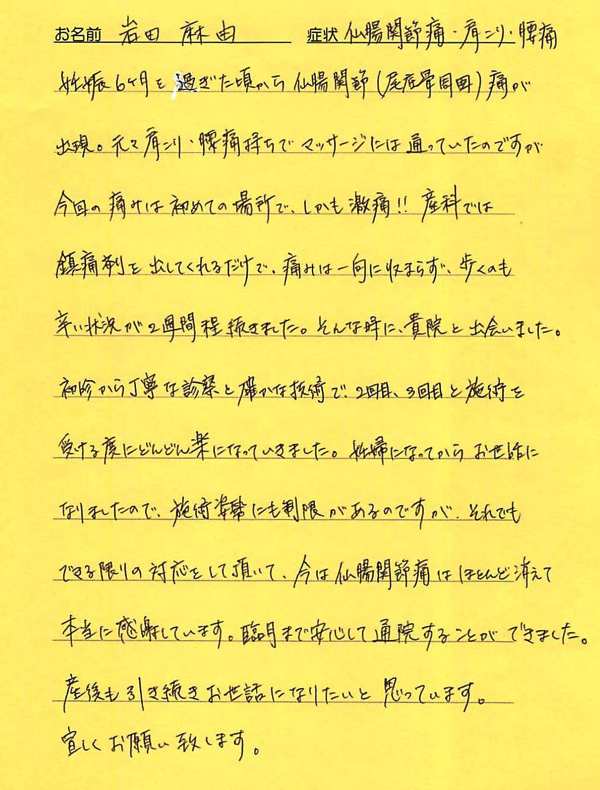 お名前 岩田 麻由 症状 仙腸関節痛・肩こり・腰痛
妊娠6ヶ月を過ぎた頃から仙腸関節(尾底骨周囲)痛が
出現。元々肩こり・腰痛持ちでマッサージには通っていたのですが
今回の痛みは初めての場所で、しかも激痛!! 産科では
鎮痛剤を出してくれるだけで、痛みは一向に収まらず、歩くのも
辛い状況が2週間程続きました。そんな時に、貴院と出会いました。
初診から丁寧な診察と確かな技術で、2回目、3回目と施術を
受ける度にどんどん楽になっていきました。妊婦になってからお世話に
なりましたので、施術姿勢にも制限があるのですが、それでも
できる限りの対応をして頂いて、今は仙腸関節痛はほとんど消えて
本当に感謝しています。臨月まで安心して通院することができました。
産後も引き続きお世話になりたいと思っています。
宜しくお願い致します。